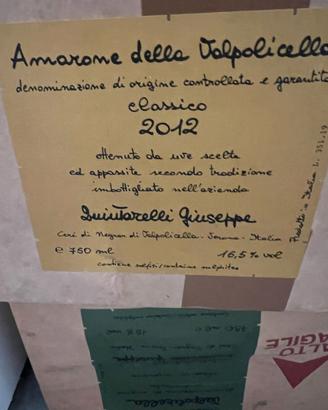 Amarone della Valpolicella
denominazione di origine controllata e garantita
classico
2012
ottenuto da uve scelte
ed appassite secondo tradizione
imbottigliato nell'azienda
Quintarelli Giuseppe
Cerè di Negrar di Valpolicella - Verona - Italia
e 750 ml
16,5% vol
contiene solfiti/contains sulphites
Prodotto in Italia L.
ALTO
FRAGILE
Valpolicella